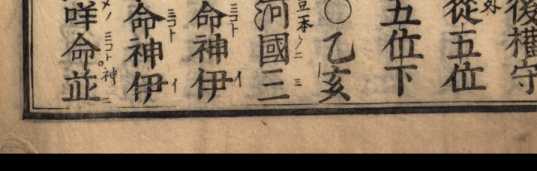 後權守
從五位
五位下
○乙亥
河國三
命神伊
命神伊
咩命並